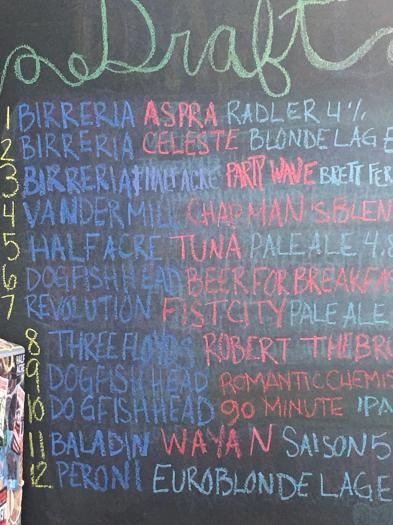 Draft
1 BIRRERIA ASPRA RADLER 4%
2 BIRRERIA CELESTE BLONDE LAGE
3 BIRRERIA & HALF ACRE PARTY WAVE BRETT FER
4 VANDERMILL CHAPMAN'S BLEN
5 HALF ACRE TUNA PALE ALE 4.8
6 DOGFISH HEAD BEER FOR BREAKFAS
7 REVOLUTION FIST CITY PALE ALE
8 THREE FLOYDS ROBERT THE BRU
9 DOGFISH HEAD ROMANTIC CHEMIS
10 DOGFISH HEAD 90 MINUTE IPA
11 BALADIN WAYAN SAISON 5
12 PERONI EURO BLONDE LAGE